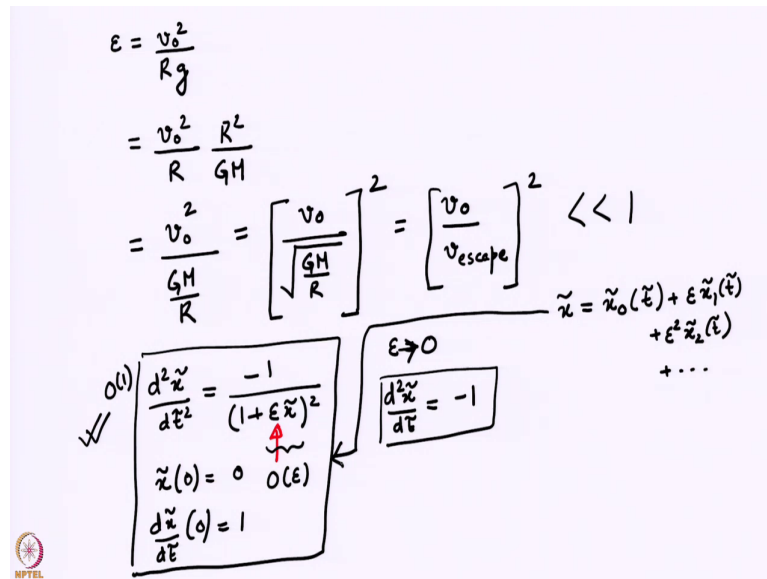 ε = v₀² / Rg
= v₀² / R  R² / GM
= v₀² / (GM / R) = [v₀ / √(GM / R)]² = [v₀ / v_escape]² << 1
x̃ = x̃₀(t̃) + εx̃₁(t̃)
+ ε²x̃₂(t̃)
+ ...
ε→0
O(1) d²x̃ / dt̃² = -1 / (1 + εx̃)²
d²x̃ / dt̃ = -1
x̃(0) = 0 O(ε)
dx̃ / dt̃ (0) = 1
NPTEL